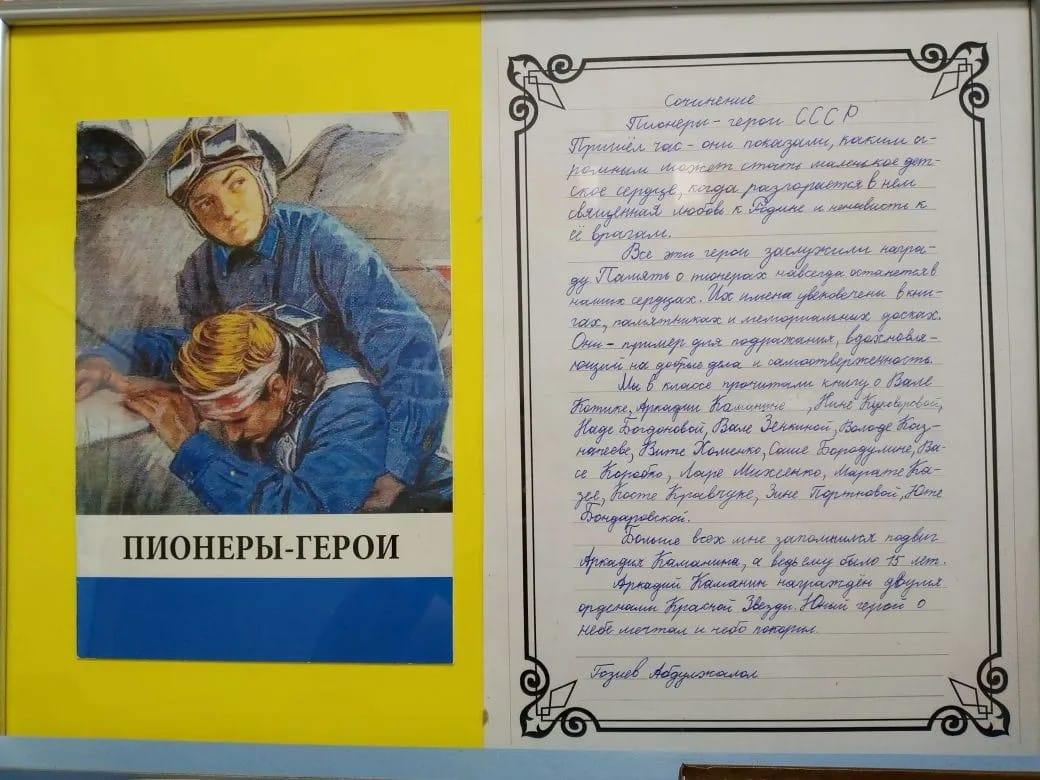 ПИОНЕРЫ-ГЕРОИ
Сочинение
Пионеры - герои СССР
Пришёл час - они показали, каким ог-
ромным может стать маленькое дет-
ское сердце, когда разгорается в нём
священная любовь к Родине и ненависть к
её врагам.
Все эти герои заслужили награ-
ду. Память о пионерах навсегда останется в
наших сердцах. Их имена увековечены в кни-
гах, памятниках и мемориальных досках.
Они - пример для подражания, вдохновля-
ющий на добрые дела и самоотверженность.
Мы в классе прочитали книгу о Вале
Котике, Аркадии Каманине, Нине Куковеровой,
Наде Богдановой, Вале Зенкиной, Володе Каз-
начееве, Вите Хоменко, Саше Бородулине, Ва-
се Коробко, Ларе Михеенко, Марате Ка-
зее, Косте Кравчуке, Зине Портновой, Юте
Бондаровской.
Больше всех мне запомнился подвиг
Аркадия Каманина, а ведь ему было 15 лет.
Аркадий Каманин награждён двумя
орденами Красной Звезды. Юный герой о
небе мечтал и небо покорил.
Гозиев Абдулжалол